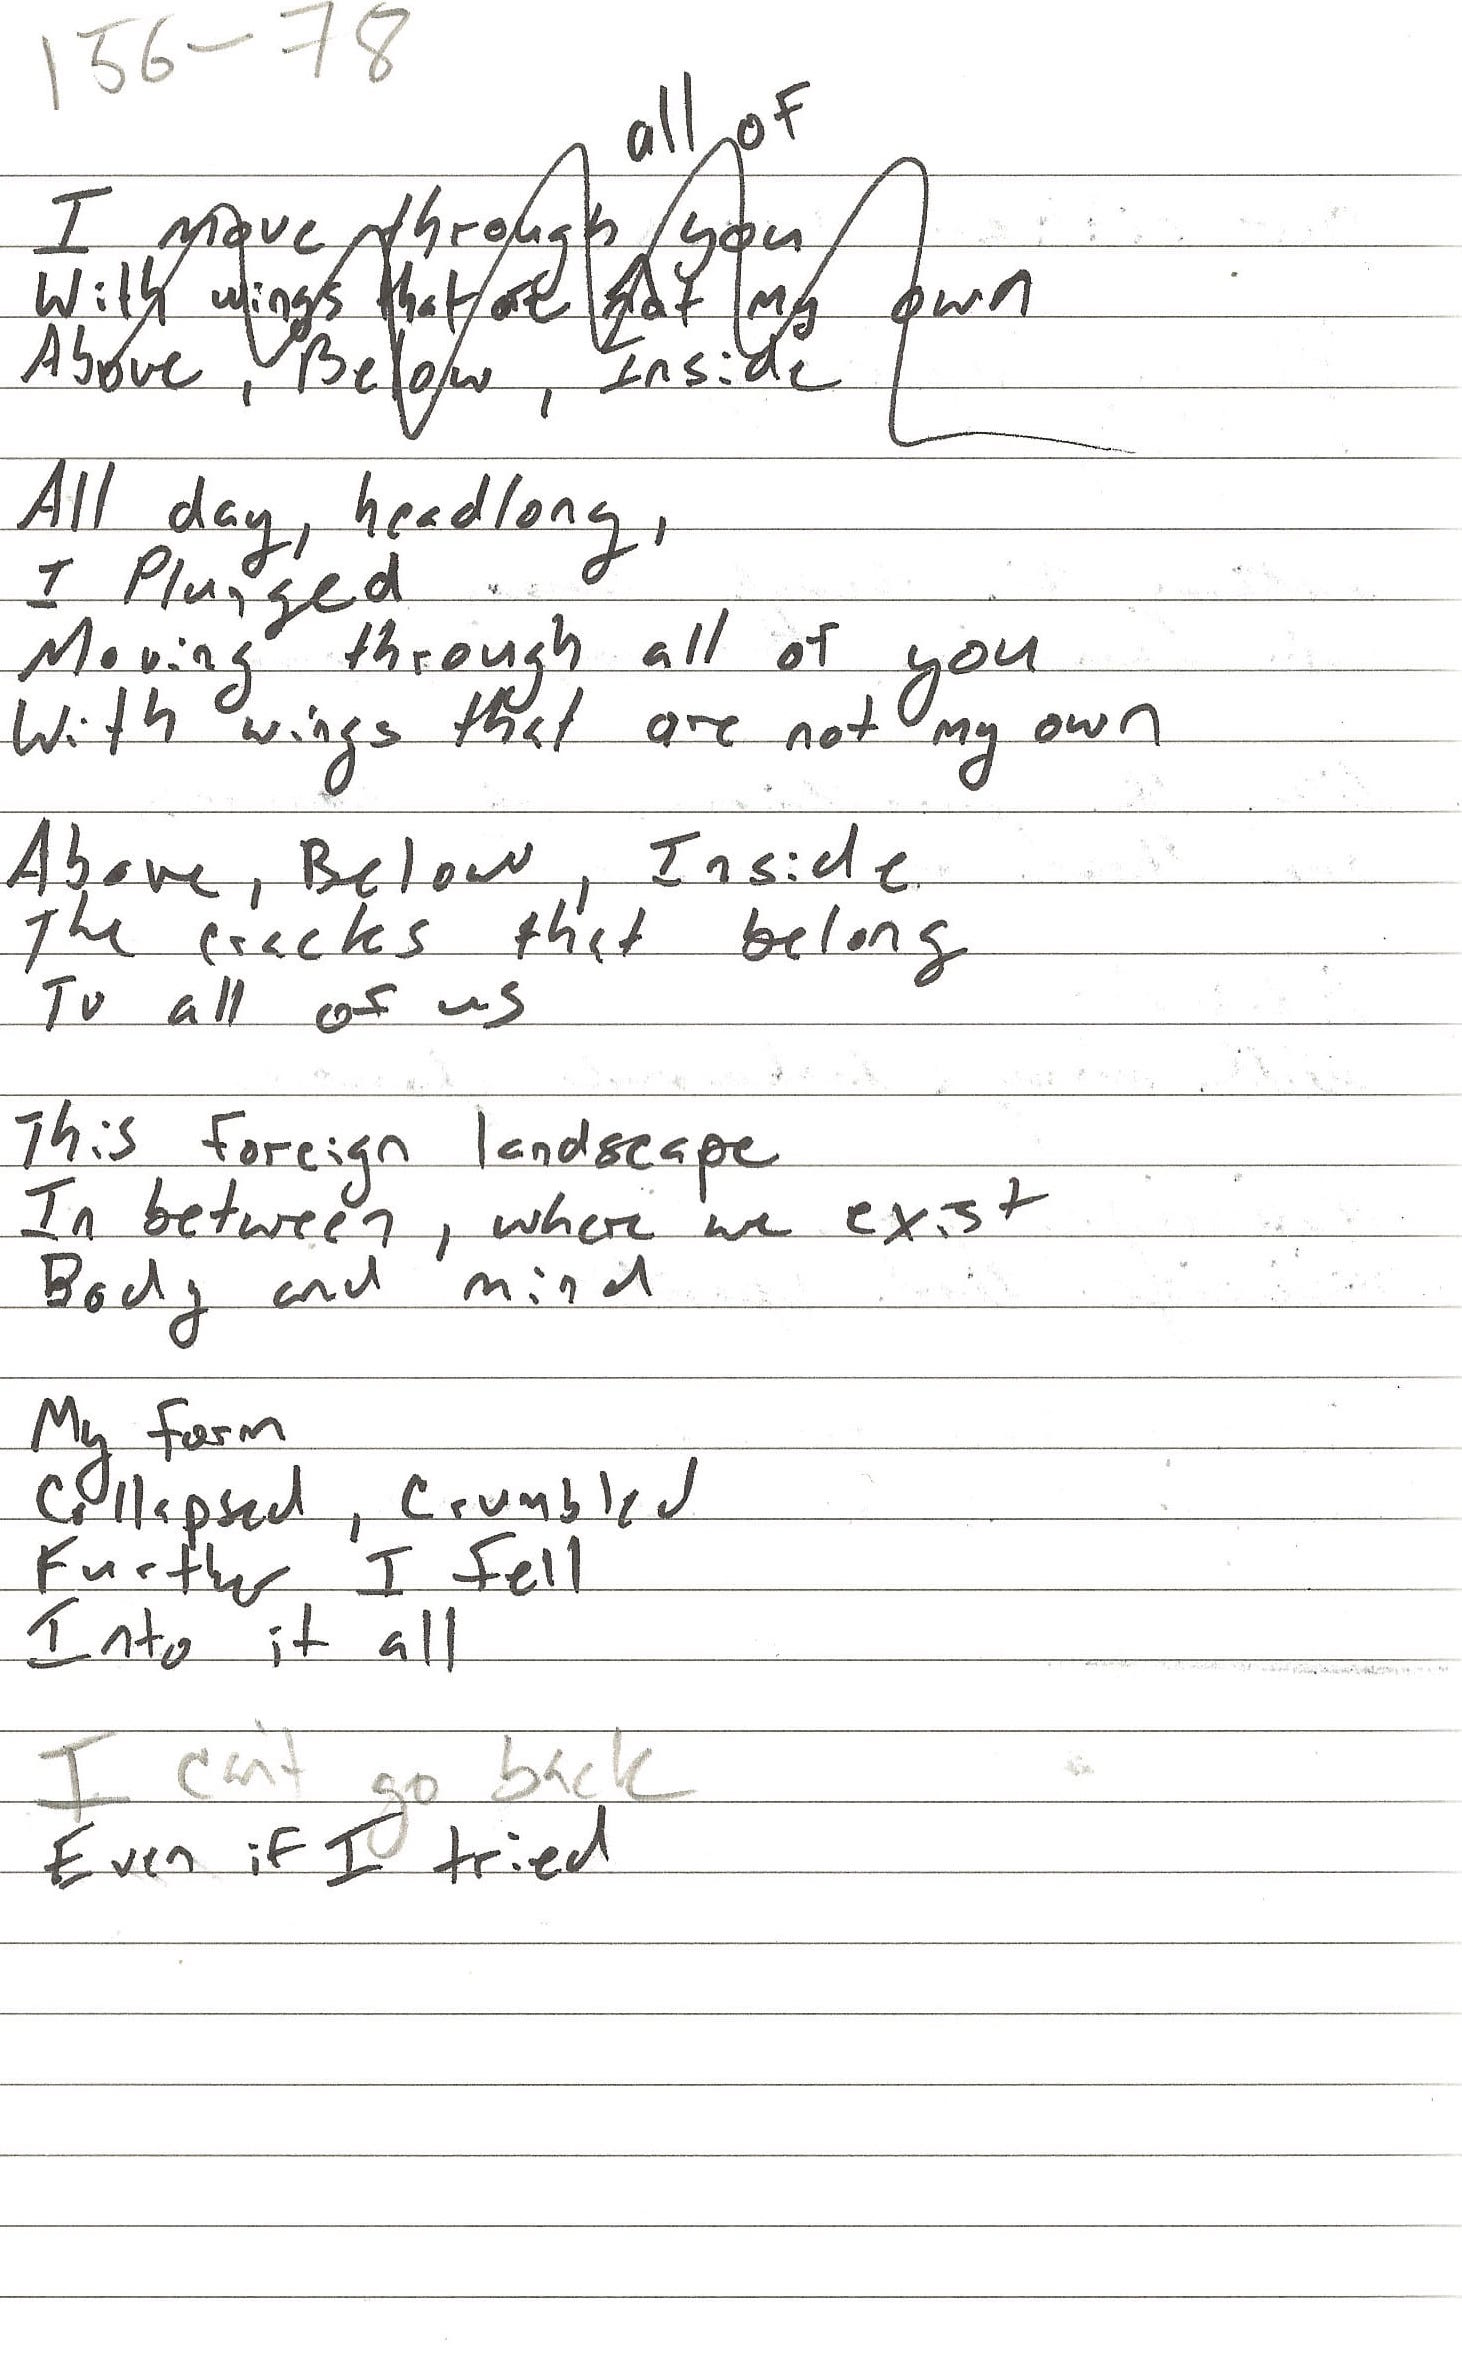 156-78
all of
I move through you
With wings that are not my own
Above, Below, Inside
All day, headlong,
I Plunged
Moving through all of you
With wings that are not my own
Above, Below, Inside
The cracks that belong
To all of us
This foreign landscape
In between, where we exist
Body and mind
My form
Collapsed, Crumbled
Further I fell
Into it all
I can't go back
Even if I tried